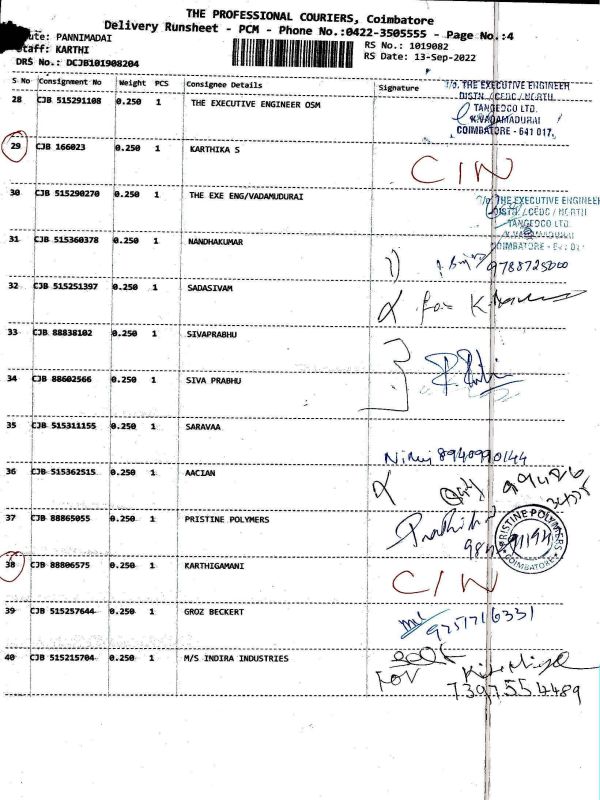 THE PROFESSIONAL COURIERS, Coimbatore
Delivery Runsheet - PCM - Phone No.:0422-3505555 - Page No.:4
ute: PANNIMADAI
taff: KARTHI
DRS No.: DCJB101908204
RS No.: 1019082
RS Date: 13-Sep-2022
S No Consignment No Weight PCS Consignee Details Signature
28 CJB 515291108 0.250 1 THE EXECUTIVE ENGINEER OSM
THE EXECUTIVE ENGINEER
DISTN. / CEDC / NORTH
TANGEDCO LTD.
K.VADAMADURAI
COIMBATORE - 641 017.
29 CJB 166023 0.250 1 KARTHIKA S
C/N
30 CJB 515290270 0.250 1 THE EXE ENG/VADAMUDURAI
THE EXECUTIVE ENGINEER
DISTN. / CEDC / NORTH
TANGEDCO LTD.
COIMBATORE
31 CJB 515360378 0.250 1 NANDHAKUMAR
9788725000
32 CJB 515251397 0.250 1 SADASIVAM
for K.
33 CJB 88838102 0.250 1 SIVAPRABHU
34 CJB 88602566 0.250 1 SIVA PRABHU
35 CJB 515311155 0.250 1 SARAVAA
8940990144
36 CJB 515362515 0.250 1 AACIAN
37 CJB 88865055 0.250 1 PRISTINE POLYMERS
PRISTINE POLYMERS
COIMBATORE
38 CJB 88806575 0.250 1 KARTHIGAMANI
C/N
39 CJB 515257644 0.250 1 GROZ BECKERT
9751716331
40 CJB 515215704 0.250 1 M/S INDIRA INDUSTRIES
For
7397554489